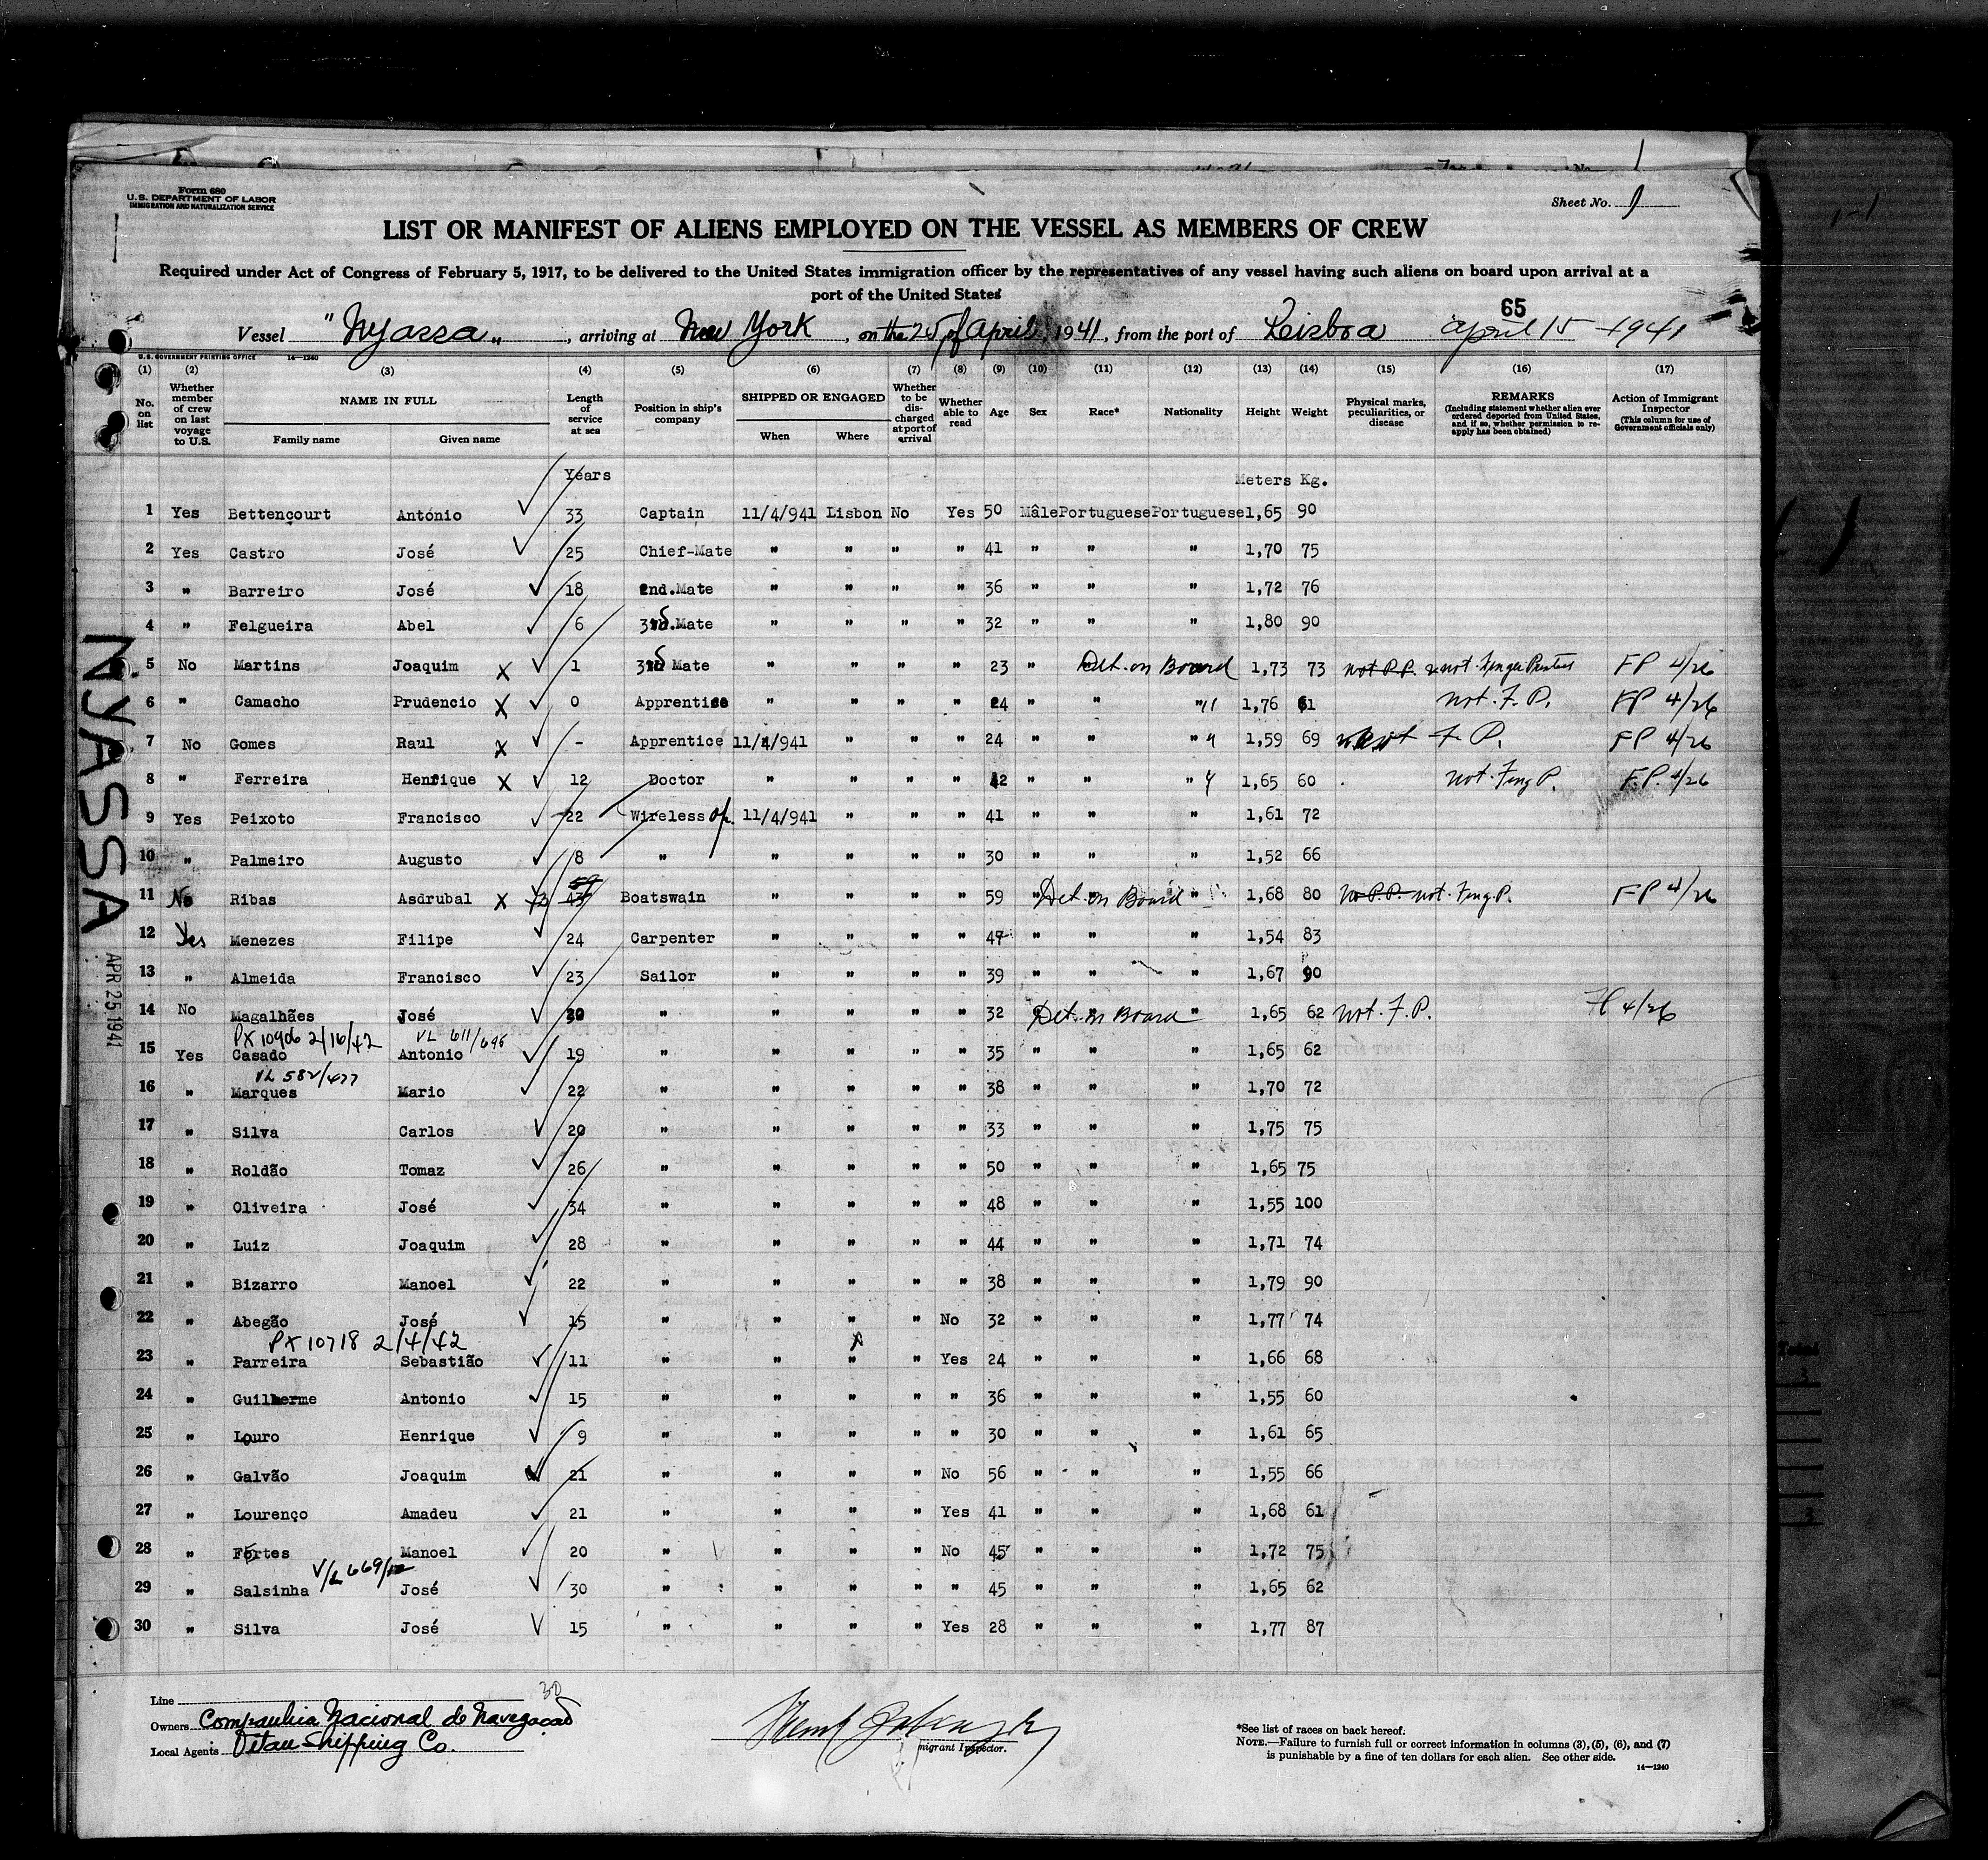 Form 680
U. S. DEPARTMENT OF LABOR
IMMIGRATION AND NATURALIZATION SERVICE
1
Sheet No. 1
LIST OR MANIFEST OF ALIENS EMPLOYED ON THE VESSEL AS MEMBERS OF CREW
Required under Act of Congress of February 5, 1917, to be delivered to the United States immigration officer by the representatives of any vessel having such aliens on board upon arrival at a
port of the United States
65
Vessel "Nyassa", arriving at New York, on the 25 of April, 1941, from the port of Leisboa April 15 - 1941
U. S. GOVERNMENT PRINTING OFFICE 14—1240
(1) (2) (3) (4) (5) (6) (7) (8) (9) (10) (11) (12) (13) (14) (15) (16) (17)
No. on list
Whether member of crew on last voyage to U.S.
NAME IN FULL
Family name Given name
Length of service at sea
Position in ship's company
SHIPPED OR ENGAGED
When Where
Whether to be discharged at port of arrival
Whether able to read
Age Sex Race* Nationality Height Weight
Physical marks, peculiarities, or disease
REMARKS
(Including statement whether alien ever ordered deported from United States, and if so, whether permission to reapply has been obtained)
Action of Immigrant Inspector
(This column for use of Government officials only)
Years Meters Kg.
1 Yes Bettencourt António 33 Captain 11/4/941 Lisbon No Yes 50 Mâle Portuguese Portuguese 1,65 90
2 Yes Castro José 25 Chief-Mate " " " " 41 " " " 1,70 75
3 " Barreiro José 18 2nd.Mate " " " " 36 " " " 1,72 76
4 " Felgueira Abel 6 3d.Mate " " " " 32 " " " 1,80 90
5 No Martins Joaquim X 1 3d Mate " " " " 23 " Det. on Board 1,73 73 not P.P. not Finger Printed FP 4/26
6 " Camacho Prudencio X 0 Apprentice " " " " 24 " " " 1,76 61 not. F. P. FP 4/26
7 No Gomes Raul X - Apprentice 11/4/941 " " " 24 " " " 1,59 69 not F. P. FP 4/26
8 " Ferreira Henrique X 12 Doctor " " " " 42 " " " 1,65 60 not. Fing P. F.P. 4/26
9 Yes Peixoto Francisco 22 Wireless Op. 11/4/941 " " " 41 " " " 1,61 72
10 " Palmeiro Augusto 8 " " " " " 30 " " " 1,52 66
11 No Ribas Asdrubal X 43 Boatswain " " " " 59 " Det. on Board " 1,68 80 No P.P. not. Fing. P. FP 4/26
12 Yes Menezes Filipe 24 Carpenter " " " " 47 " " " 1,54 83
13 " Almeida Francisco 23 Sailor " " " " 39 " " " 1,67 90
14 No Magalhães José " " " " " 32 Det. on Board 1,65 62 not. F. P. 4/26
PX 10906 2/16/42 VL 611/696
15 Yes Casado Antonio 19 " " " " " 35 " " " 1,65 62
VL 582/477
16 " Marques Mario 22 " " " " " 38 " " " 1,70 72
17 " Silva Carlos 20 " " " " " 33 " " " 1,75 75
18 " Roldão Tomaz 26 " " " " " 50 " " " 1,65 75
19 " Oliveira José 34 " " " " " 48 " " " 1,55 100
20 " Luiz Joaquim 28 " " " " " 44 " " " 1,71 74
21 " Bizarro Manoel 22 " " " " " 38 " " " 1,79 90
22 " Abegão José 15 " " " " No 32 " " " 1,77 74
PX 10718 2/4/42
23 " Parreira Sebastião 11 " " " " Yes 24 " " " 1,66 68
24 " Guilherme Antonio 15 " " " " " 36 " " " 1,55 60
25 " Louro Henrique 9 " " " " " 30 " " " 1,61 65
26 " Galvão Joaquim 21 " " " " No 56 " " " 1,55 66
27 " Lourenço Amadeu 21 " " " " Yes 41 " " " 1,68 61
28 " Fortes Manoel 20 " " " " No 45 " " " 1,72 75
V/L 669/
29 " Salsinha José 30 " " " " " 45 " " " 1,65 62
30 " Silva José 15 " " " " Yes 28 " " " 1,77 87
NYASSA
APR 25 1941
30
Line
Owners Companhia Nacional de Navegação
Local Agents Shipping Co.
migrant Inspector.
*See list of races on back hereof.
NOTE.—Failure to furnish full or correct information in columns (3), (5), (6), and (7)
is punishable by a fine of ten dollars for each alien. See other side.
14—1240
Total
3
3